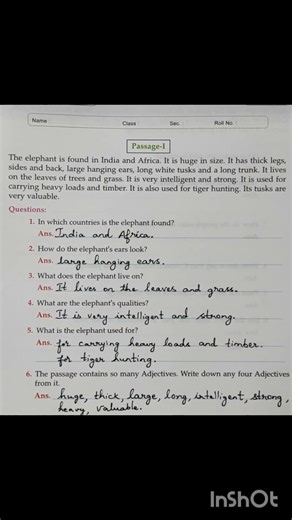 Name : Class : Sec. : Roll No. :
Passage-I
The elephant is found in India and Africa. It is huge in size. It has thick legs,
sides and back, large hanging ears, long white tusks and a long trunk. It lives
on the leaves of trees and grass. It is very intelligent and strong. It is used for
carrying heavy loads and timber. It is also used for tiger hunting. Its tusks are
very valuable.
Questions:
1. In which countries is the elephant found?
Ans. India and Africa.
2. How do the elephant's ears look?
Ans. large hanging ears.
3. What does the elephant live on?
Ans. It lives on the leaves and grass.
4. What are the elephant's qualities?
Ans. It is very intelligent and strong.
5. What is the elephant used for?
Ans. for carrying heavy loads and timber.
for tiger hunting.
6. The passage contains so many Adjectives. Write down any four Adjectives
from it.
Ans. huge, thick, large, long, intelligent, strong,
heavy, valuable.
InShOt